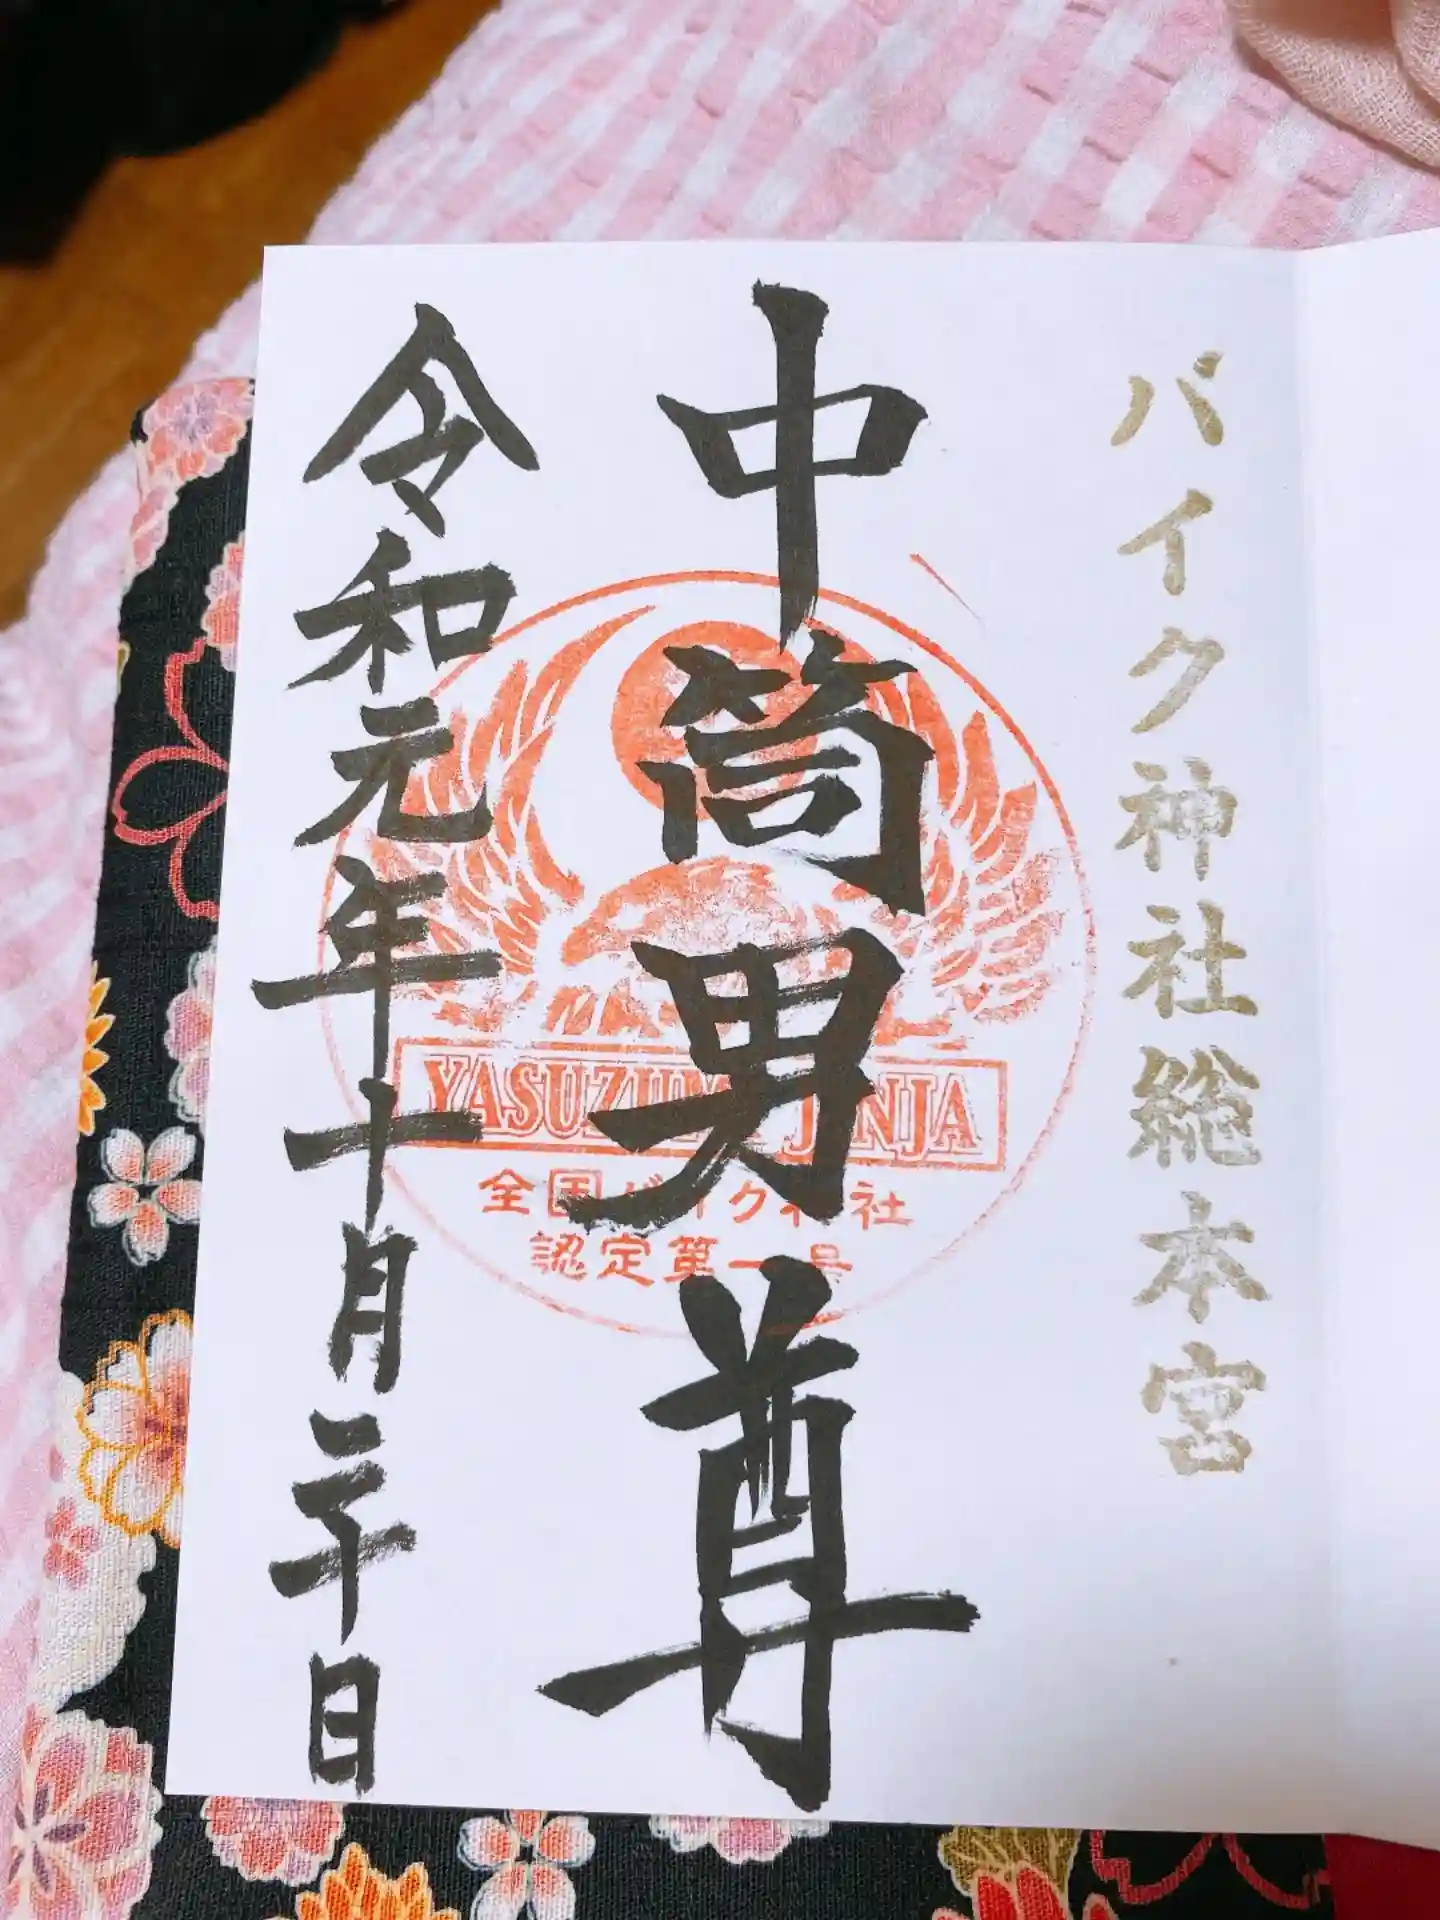 バイク神社総本宮
中筒男尊
令和元年十月二十日
YASUZUMI JINJA
全国バイク神社
認定第一号